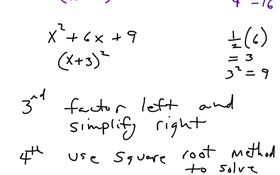 4 -16
x² + 6x + 9
½(6)
(x+3)²
= 3
3² = 9
3rd factor left and
simplify right
4th use square root method
to solve